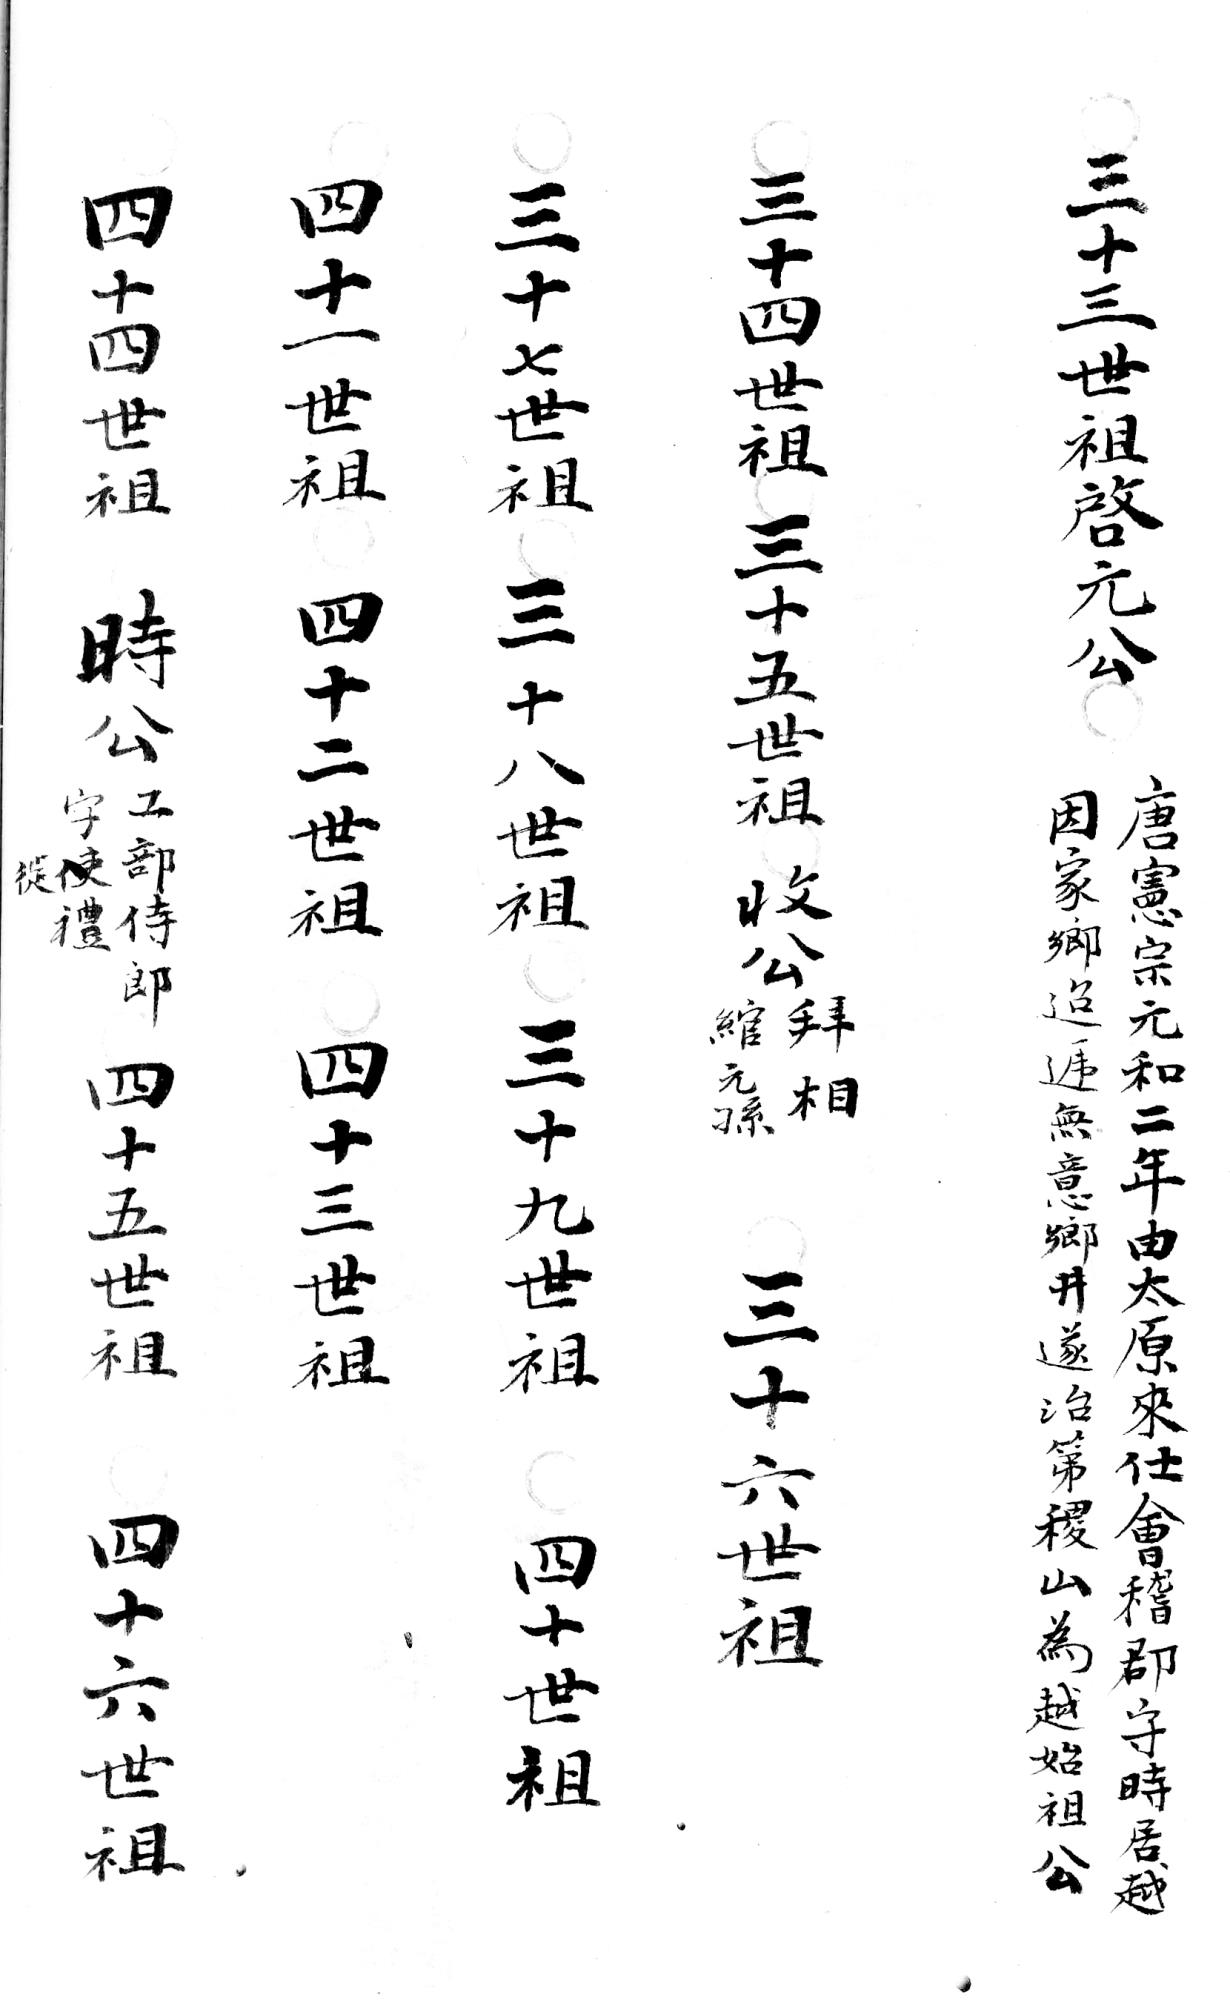 三十三世祖啓元公
唐憲宗元和二年由太原來仕會稽郡守時居越
因家鄉迢遞無意鄉井遂治第稷山為越始祖公
三十四世祖 三十五世祖 收公
拜相
綰元孫
三十六世祖
三十七世祖 三十八世祖 三十九世祖 四十世祖
四十一世祖 四十二世祖 四十三世祖
四十四世祖 時公
工部侍郎
字使禮
從
四十五世祖 四十六世祖